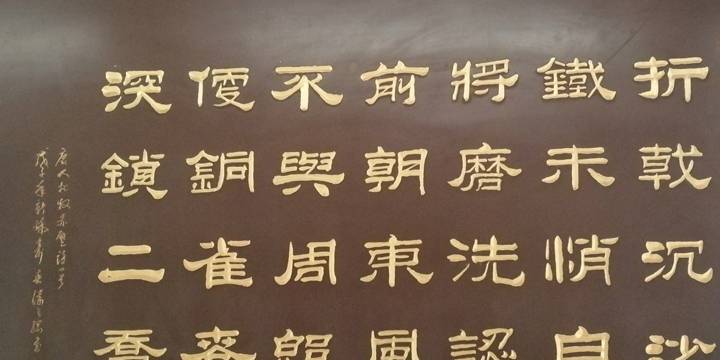 折戟沉沙
鐵未消自
將磨洗認
前朝東風
不與周郎
便銅雀春
深鎖二喬
唐人杜牧赤壁詩一首
戊子年